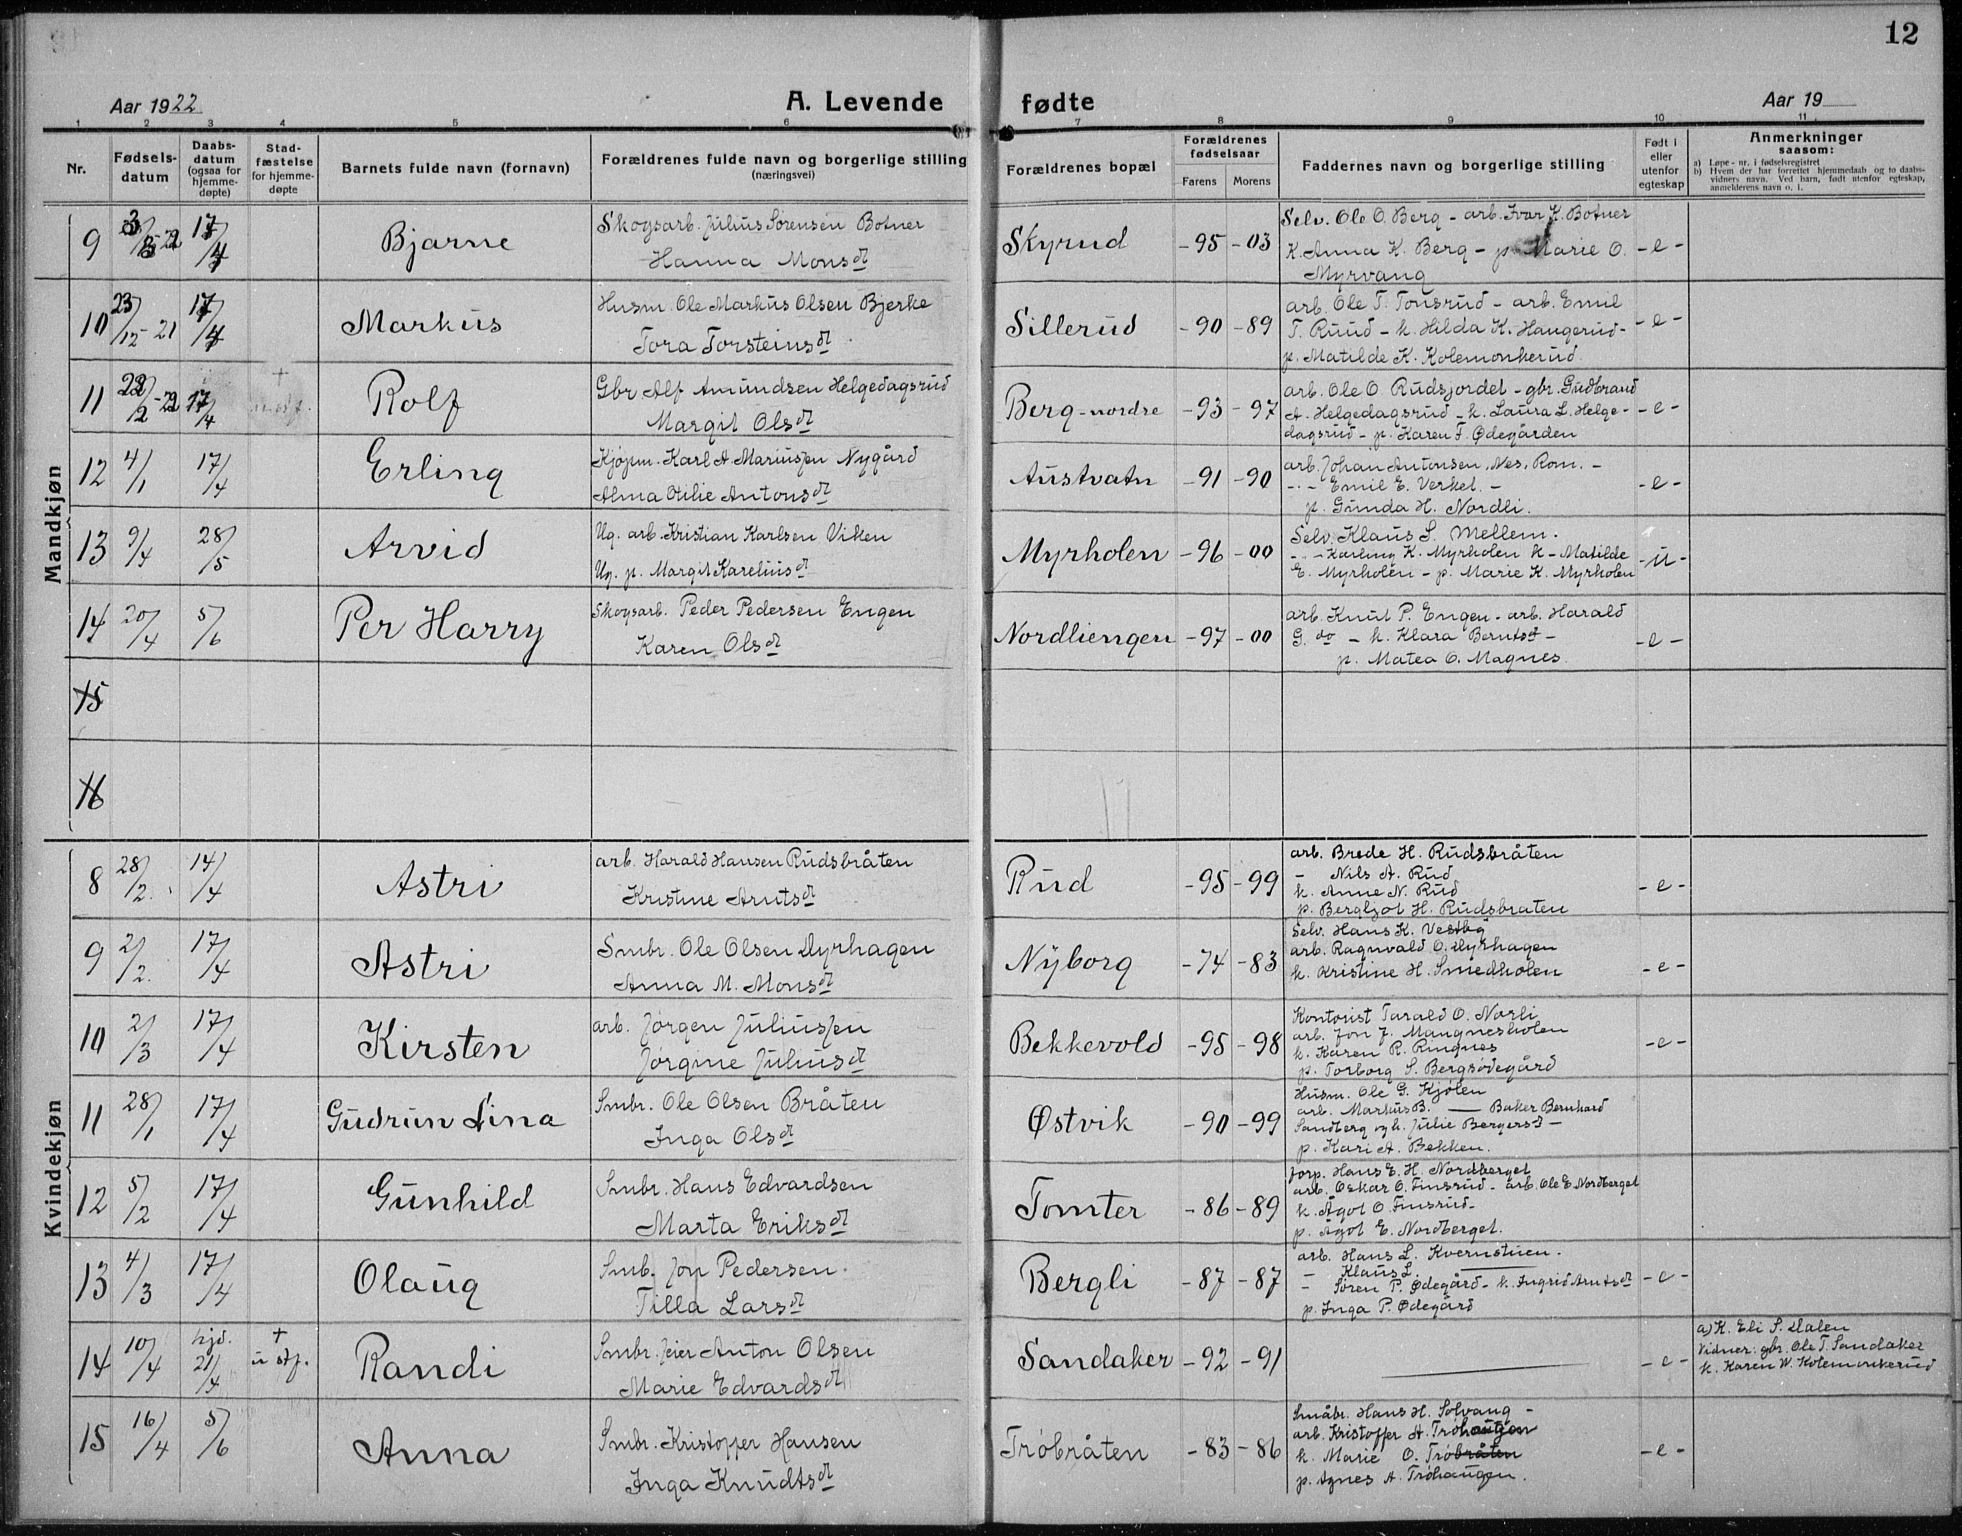 12
Aar 1922
A. Levende
fødte
Aar 19
1 2 3 4 5 6 7 8 9 10 11
Nr.
Fødsels-
datum
Daabs-
datum
(ogsaa for
hjemme-
døpte)
Stad-
fæstelse
for hjemme-
døpte
Barnets fulde navn (fornavn)
Forældrenes fulde navn og borgerlige stilling
(næringsvei)
Forældrenes bopæl
Forældrenes
fødselsaar
Farens Morens
Faddernes navn og borgerlige stilling
Født i
eller
utenfor
egteskap
Anmerkninger
saasom:
a) Løpe-nr. i fødselsregistret
b) Hvem der har forrettet hjemmedaab og to daabs-
vidners navn. Ved barn, født utenfor egteskap,
anmelderens navn o. l.
Mandkjøn
9 17/4 Bjarne
Skogsarb. Julius Sørensen Botner
Hanna Monsdt
Skyrud -95 -03
Selv. Ole O. Berg - arb. Ivar K. Botner
K. Anna K. Berg - p. Marie O.
Myrvang
-e-
10 23/12-21 17/4 Markus
Husm. Ole Markus Olsen Bjerke
Tora Torsteinsdt
Sillerud -90 -89
arb. Ole T. Tonsrud - arb. Emil
T. Ruud - k. Hilda K. Haugerud -
p. Matilde K. Kolemonkerud
-e-
11 22/2-22 17/4 Rolf
Gbr Alf Amundsen Helgedagsrud
Margit Olsdt
Berg-nordre -93 -97
arb. Ole O Rudsjordet - gbr. Gudbrand
A. Helgedagsrud - k. Laura L. Helge-
dagsrud - p. Karen F. Ødegården
-e-
12 4/1 17/4 Erling
Kjøpm. Karl A. Mariussen Nygård
Alma Otilie Antonsdt
Austvatn -91 -90
arb. Johan Antonsen, Nes, Rom. -
-"- Emil E. Verkel. -
p. Gunda H. Nordli.
-e-
13 9/4 28/5 Arvid
Ug. arb. Kristian Karlsen Viken
Ug. p. Margit Kareliusdt
Myrholen -96 -00
Selv. Klaus S. Mellem.
-"- Karling K. Myrholen k - Matilde
E. Myrholen - p. Marie K. Myrholen
-u-
14 20/4 5/6 Per Harry
Skogsarb. Peder Pedersen Engen
Karen Olsdt
Nordliengen -97 -00
arb. Knut P. Engen - arb. Harald
G. do - k. Klara Berntsdt -
p. Matea O. Magnes.
-e-
15
16
Kvindekjøn
8 28/2 14/4 Astri
arb. Harald Hansen Rudsbråten
Kristine Arntsdt
Rud -95 -99
arb. Brede H. Rudsbråten
- Nils A. Rud
k. Anne N. Rud
p. Bergljot H. Rudsbraten
-e-
9 2/2 17/4 Astri
Smbr. Ole Olsen Dyrhagen
Anna M. Monsdt
Nyborg -74 -83
Selv. Hans K. Vestby
arb. Ragnvald O. Dyrhagen
k. Kristine H. Smedholen
-e-
10 2/3 17/4 Kirsten
arb. Jørgen Juliussen
Jørgine Juliusdt
Bekkevold -95 -98
Kontorist Tarald O. Norli
arb. Jon J. Mangnesholen
k. Karen R. Ringnes
p. Torborg S. Bergsødegård
-e-
11 28/1 17/4 Gudrun Lina
Smbr. Ole Olsen Bråten
Inga Olsdt
Østvik -90 -99
Husm. Ole G. Kjølen
arb. Markus B. — Baker Bernhard
Sandberg og k. Julie Bergersdt -
p. Kari A. Bekken.
12 5/2 17/4 Gunhild
Smbr. Hans Edvardsen
Marta Eriksdt
Tomter -86 -89
forp. Hans E. H. Nordberget
arb. Oskar O. Finsrud - arb. Ole E. Nordberget
k. Ågot O. Finsrud -
p. Ågot E. Nordberget.
13 4/3 17/4 Olaug
Smb. Jon Pedersen.
Tilla Larsdt
Bergli -87 -87
arb. Hans L. Kvernstuen.
- Klaus L. —
- Søren P. Ødegård - k. Ingrid Arntsdt
p. Inga P. Ødegård
-e-
14 10/4 hjd. 21/4 + u stf. Randi
Smbr. Peier Anton Olsen
Marie Edvardsdt
Sandaker -92 -91
-e-
a) K. Eli S. Dalen
Vidner: gbr. Ole T. Sandaker
k. Karen W. Kolemonkerud
15 16/4 5/6 Anna
Smbr. Kristoffer Hansen
Inga Knudtsdt
Trøbråten -83 -86
Småbr. Hans H. Solvang -
arb. Kristoffer A. Trøhaugen
k. Marie O. Trøbråten
p. Agnes A. Trøhaugen.
-e-